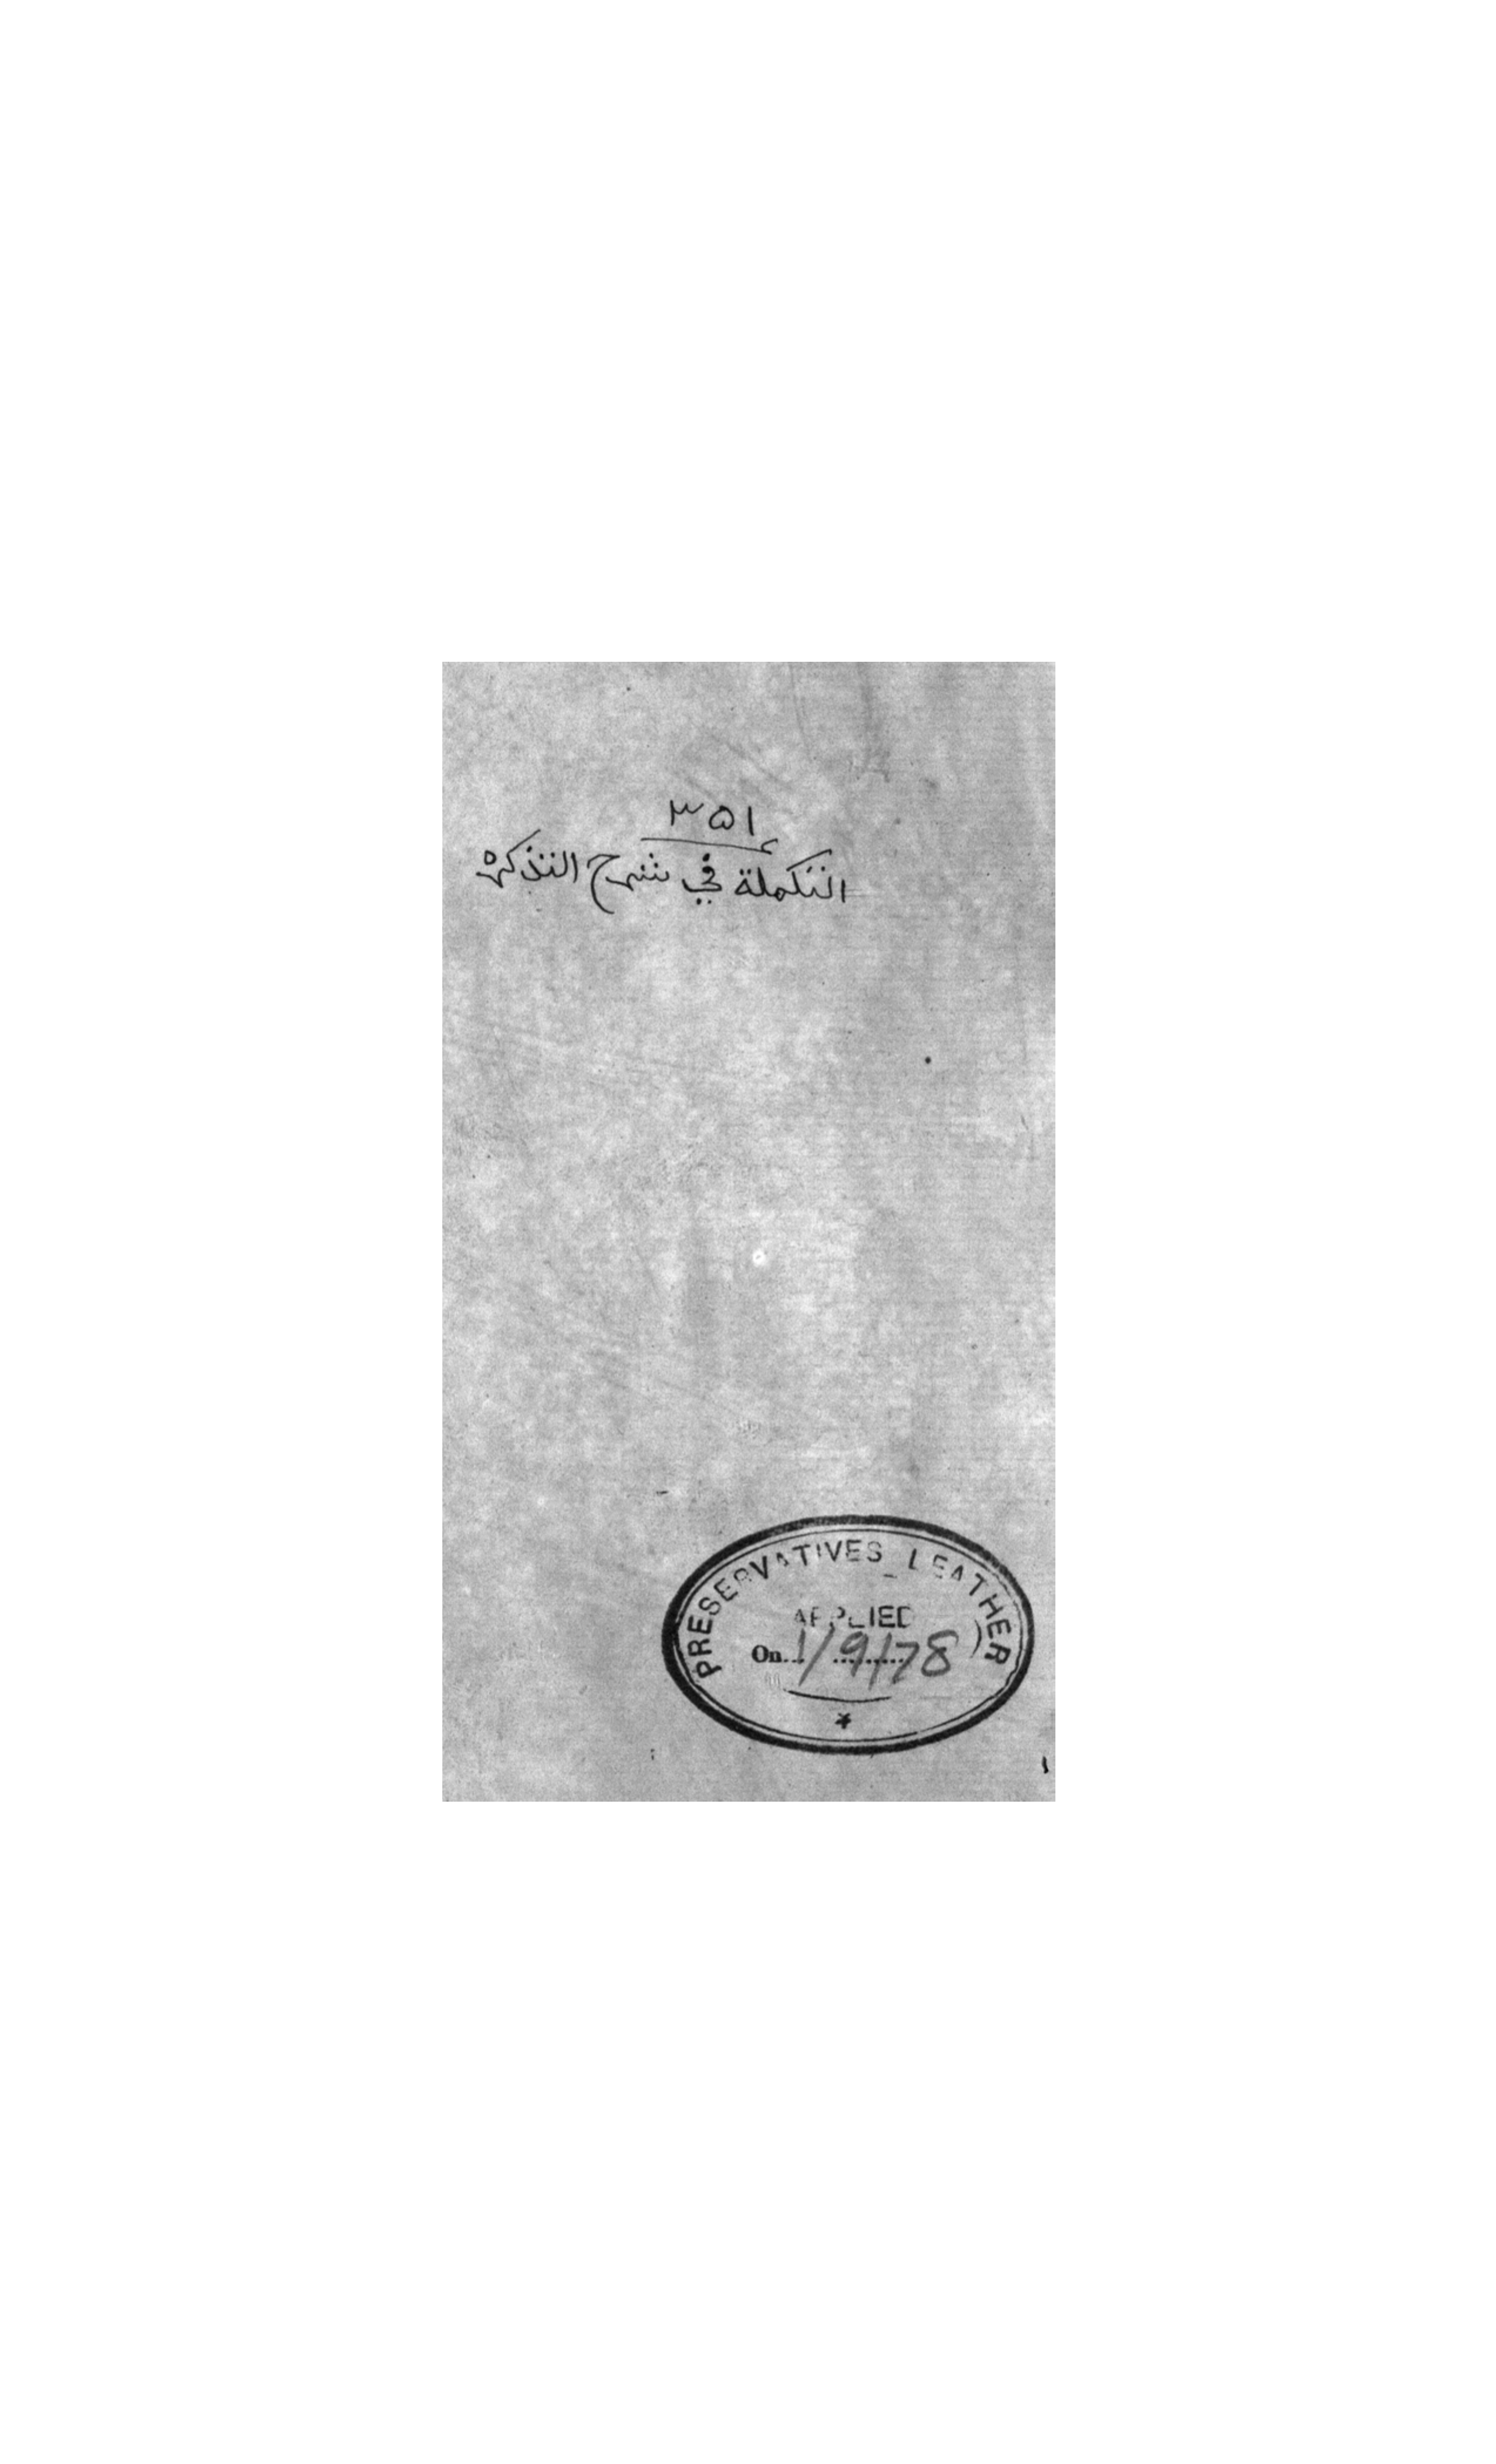 ۳۵۱
التكملة في شرح التذكره
PRESERVATIVES LEATHER
APPLIED
On 1/9/78
۱